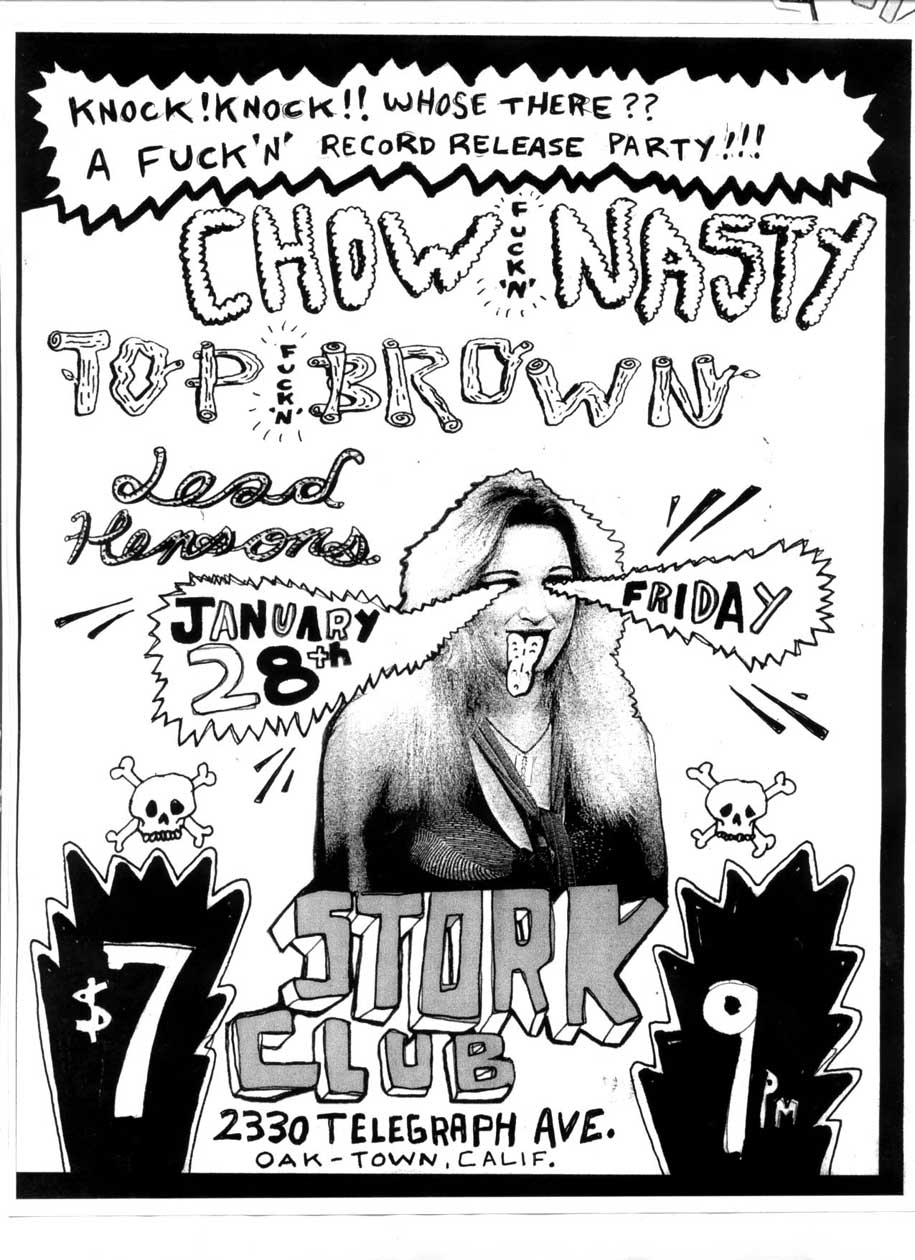 KNOCK!KNOCK!! WHOSE THERE??
A FUCK'N' RECORD RELEASE PARTY!!!
CHOW FUCK'N' NASTY
TOP FUCK'N' BROWN
dead
Hensons
JANUARY
28th
FRIDAY
$7
STORK
CLUB
9PM
2330 TELEGRAPH AVE.
OAK-TOWN, CALIF.